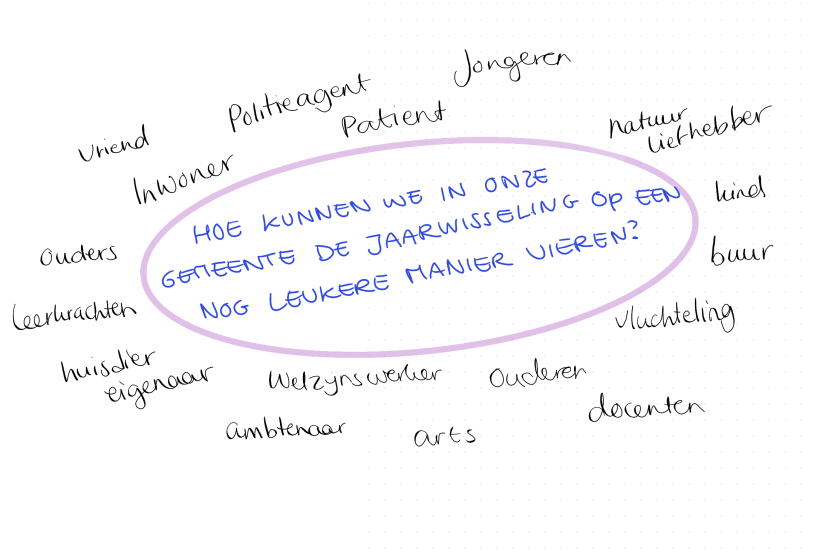 Jongeren
Politieagent
Patient
natuur
liefhebber
vriend
Inwoner
HOE KUNNEN WE IN ONZE
GEMEENTE DE JAARWISSELING OP EEN
NOG LEUKERE MANIER VIEREN?
kind
ouders
buur
leerkrachten
vluchteling
huisdier
eigenaar
Welzijnswerker
Ouderen
docenten
ambtenaar
arts